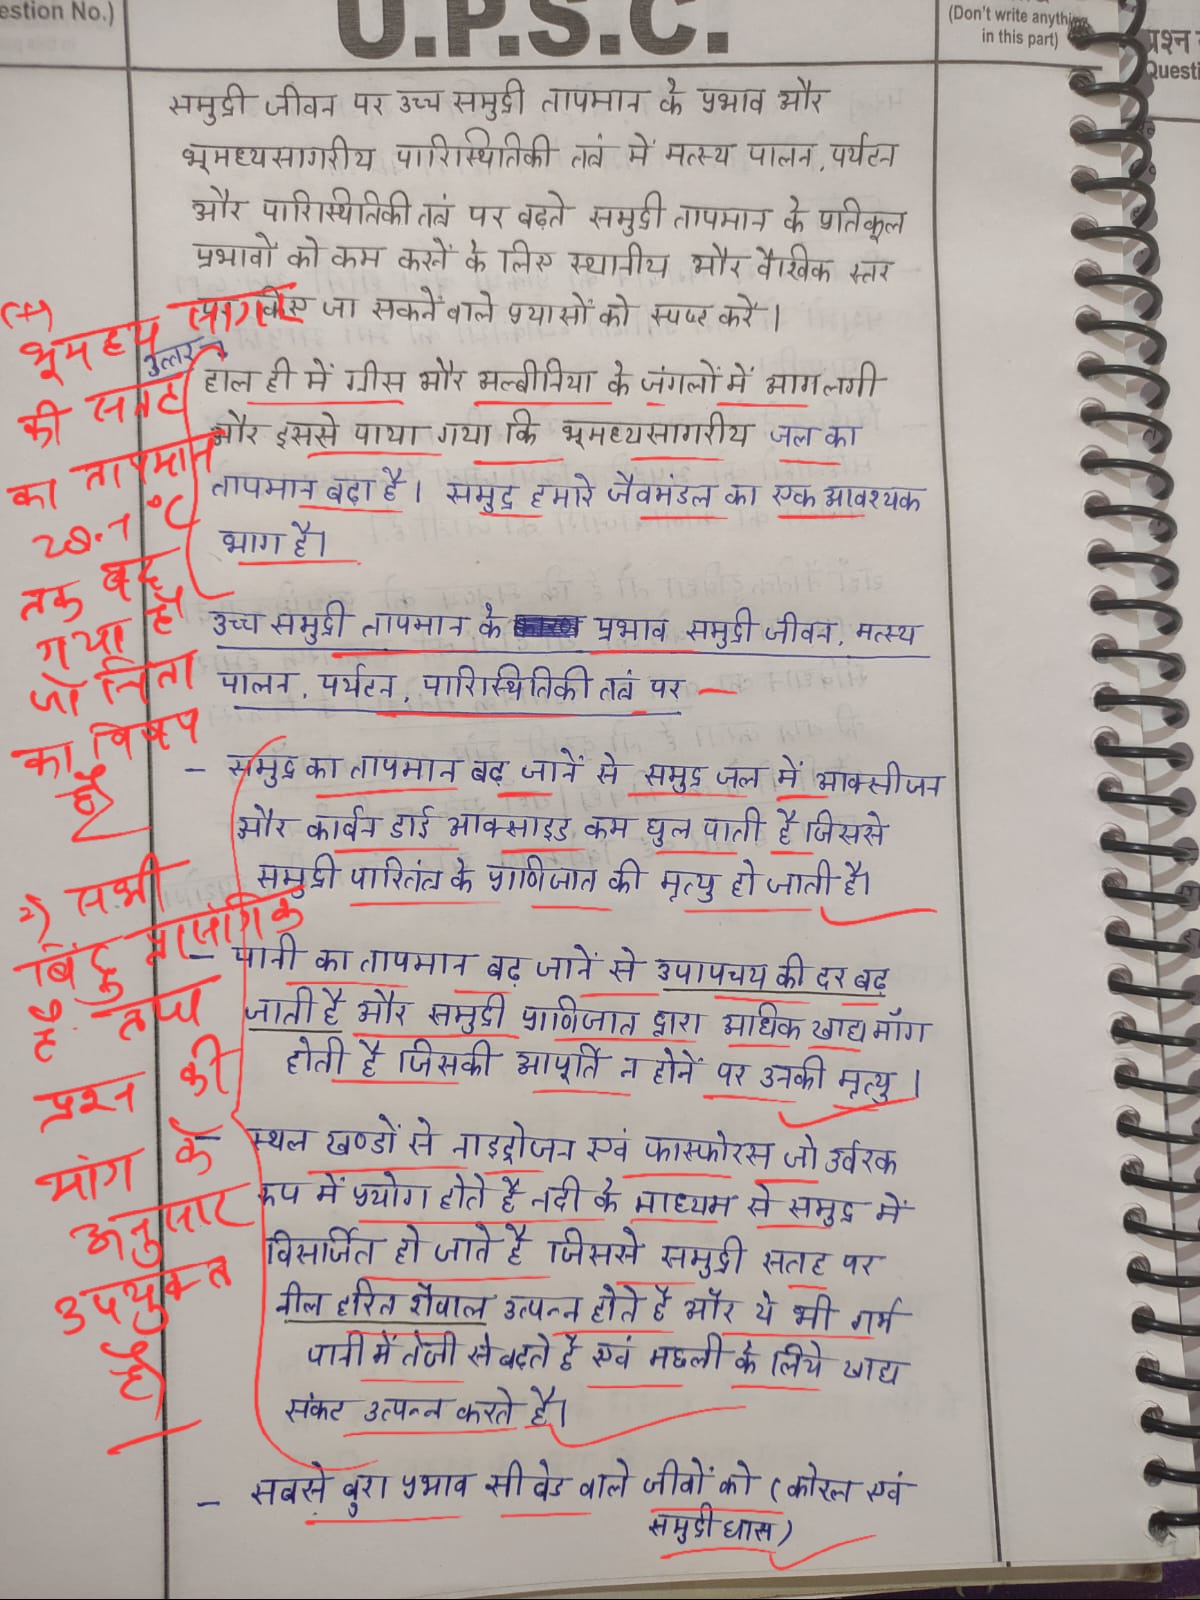 estion No.)
U.P.S.C.
(Don't write anything
in this part)
प्रश्न
Questi
समुद्री जीवन पर उच्च समुद्री तापमान के प्रभाव और
भूमध्यसागरीय पारिस्थितिकी तत्रं में मत्स्य पालन, पर्यटन
और पारिस्थितिकी तत्रं पर बढ़ते समुद्री तापमान के प्रतिकूल
प्रभावों को कम करनें के लिए स्थानीय और वैश्विक स्तर
पर किए जा सकनें वाले प्रयासों को स्पष्ट करें।
उत्तर
हाल ही में ग्रीस और अल्बीनिया के जंगलों में आग लगी
और इससे पाया गया कि भूमध्यसागरीय जल का
तापमान बढ़ा है। समुद्र हमारे जैवमंडल का एक आवश्यक
भाग है।
उच्च समुद्री तापमान के प्रभाव समुद्री जीवन, मत्स्य
पालन, पर्यटन, पारिस्थितिकी तत्रं पर
- समुद्र का तापमान बढ़ जानें से समुद्र जल में आक्सीजन
और कार्बन डाई आक्साइड कम घुल पाती है जिससे
समुद्री पारितंत्र के प्राणिजात की मृत्यु हो जाती है।
- पानी का तापमान बढ़ जानें से उपापचय की दर बढ़
जाती है और समुद्री प्राणिजात द्वारा अधिक खाद्य माँग
होती है जिसकी आपूर्ति न होनें पर उनकी मृत्यु।
- स्थल खण्डों से नाइट्रोजन एवं फास्फोरस जो उर्वरक
रूप में प्रयोग होते है नदी के माध्यम से समुद्र में
विसर्जित हो जाते है जिससे समुद्री सतह पर
नील हरित शैवाल उत्पन्न होते है और ये भी गर्म
पानी में तेजी से बढ़ते है एवं मछली के लिये खाद्य
संकट उत्पन्न करते है।
- सबसे बुरा प्रभाव सी बेड वाले जीवों को (कोरल एवं
समुद्री घास)
भूमध्य सागर
की सतह
का तापमान
28.7 °C
तक बढ़
गया है
जो चिंता
का विषय
है
2) सभी
बिंदु प्रासंगिक
है तथा
प्रश्न की
मांग के
अनुसार
उपयुक्त
है।